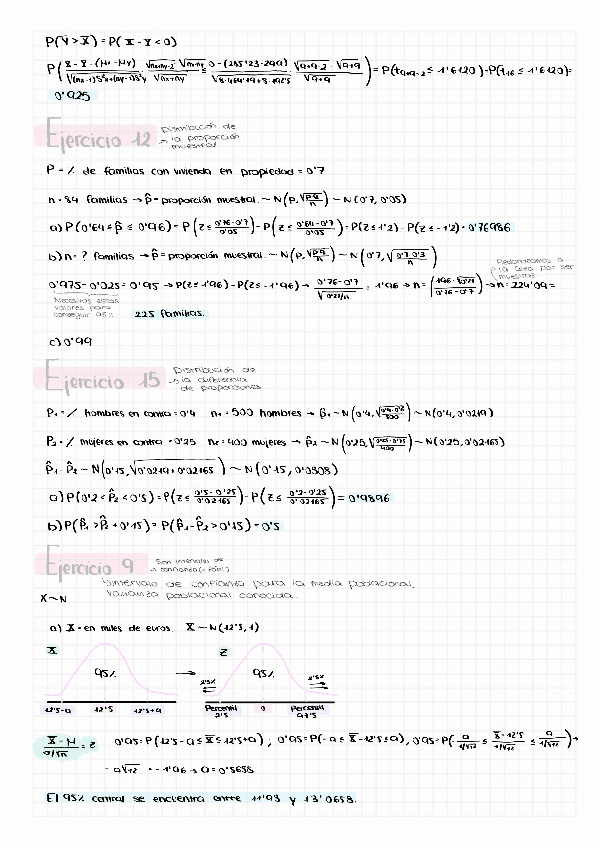 P(Y > X̄) = P(X̄ - Y < 0)
P((X̄ - Ȳ - (μx - μy))/√((nx-1)S²x+(ny-1)S²y) · √(nx+ny-2) √(nx·ny)/√(nx+ny) ≤ 0-(285'23-299)/√(8·464'19+8·192'5) · √(9+9-2) · √(9·9)/√(9+9)) = P(t9+9-2 ≤ 1'6120) = P(t16 ≤ 1'6120) =
0'925
Ejercicio 12
Distribución de
→ la proporción
muestral
P = % de familias con vivienda en propiedad = 0'7
n = 84 familias → p̂ = proporción muestral ~ N(p, √(pq/n)) ~ N(0'7, 0'05)
a) P(0'64 ≤ p̂ ≤ 0'76) = P(z ≤ (0'76-0'7)/0'05) - P(z ≤ (0'64-0'7)/0'05) = P(z ≤ 1'2) - P(z ≤ -1'2) = 0'76986
b) n = ? familias → p̂ = proporción muestral ~ N(p, √(pq/n)) ~ N(0'7, √(0'7·0'3/n))
Redondeamos a
la alza por ser
muestras
0'975 - 0'025 = 0'95 → P(z ≤ 1'96) - P(z ≤ -1'96) → (0'76-0'7)/√(0'21/n) = 1'96 → n = (1'96·√0'21/(0'76-0'7))² → n = 224'09 =
Necesitas estos
valores para
conseguir 95%
225 familias.
c) 0'99
Ejercicio 15
Distribución de
→ la diferencia
de proporciones
P₁ = % hombres en contra = 0'4 n₁ = 500 hombres → p̂₁ ~ N(0'4, √(0'4·0'6/500)) ~ N(0'4, 0'0219)
P₂ = % mujeres en contra = 0'25 n₂ = 400 mujeres → p̂₂ ~ N(0'25, √(0'25·0'75/400)) ~ N(0'25, 0'02165)
p̂₁ - p̂₂ ~ N(0'15, √(0'0219+0'02165)) ~ N(0'15, 0'0308)
a) P(0'2 < p̂₂ < 0'5) = P(z ≤ (0'5-0'25)/0'02165) - P(z ≤ (0'2-0'25)/0'02165) = 0'9896
b) P(p̂₁ > p̂₂ + 0'15) = P(p̂₁ - p̂₂ > 0'15) = 0'5
Ejercicio 9
Son intervalos de
→ confianza
Intervalo de confianza para la media poblacional.
Varianza poblacional conocida.
X ~ N
a) X = en miles de euros. X ~ N(12'5, 1)
X̄
z
95%
→
95%
2'5%
2'5%
12'5-a 12'5 12'5+a
Percentil 2'5 0 Percentil 97'5
(X̄ - μ)/(σ/√n) = z 0'95 = P(12'5-a ≤ X̄ ≤ 12'5+a) ; 0'95 = P(-a ≤ X̄-12'5 ≤ a), 0'95 = P(-a/(1/√12) ≤ (X̄-12'5)/(1/√12) ≤ a/(1/√12)) →
- a√12 = -1'96 → a = 0'5658
El 95% central se encuentra entre 11'93 y 13'0658.